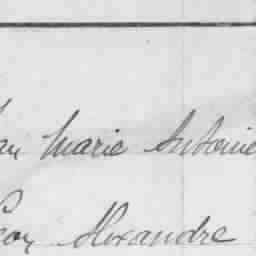 Marie Antoine
Alexandre